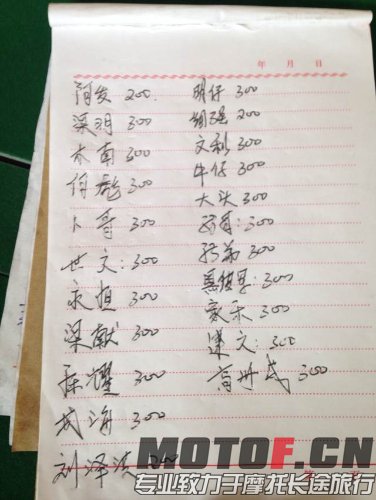 年 月 日
阿发 200. 明仔 300
梁明 300 胡强 200
木南 300 文利 300
伯彪 300 牛仔 300
卜哥 300 大头 300
世文: 300 :300
永恒 300 300
梁献 300 :300
300 家乐 300
武海 300 建文: 300
刘泽 200 300
MOTOF.CN
专业致力于摩托长途旅行